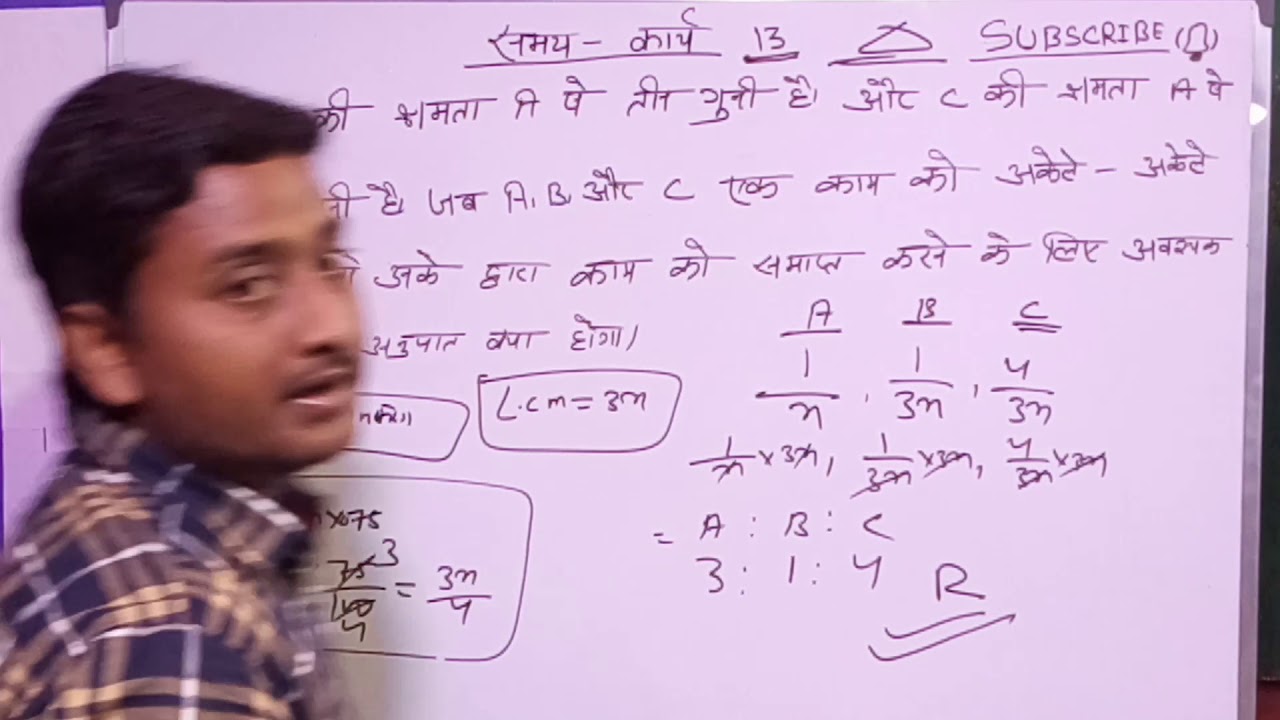 समय - कार्य 13 SUBSCRIBE
की क्षमता A पे तीन गुनी है। और C की क्षमता A पे
नी है। जब A, B, और C एक काम को अकेले - अकेले
उनके द्वारा काम को समाप्त करने के लिए अवश्यक
अनुपात क्या होगा।
A B C
1/x , 1/3x , 4/3x
L.cm = 3x
1/x × 3x, 1/3x × 3x, 4/3x × 3x
= A : B : C
3 : 1 : 4 R
×075
75 3
100 4 = 3x/4